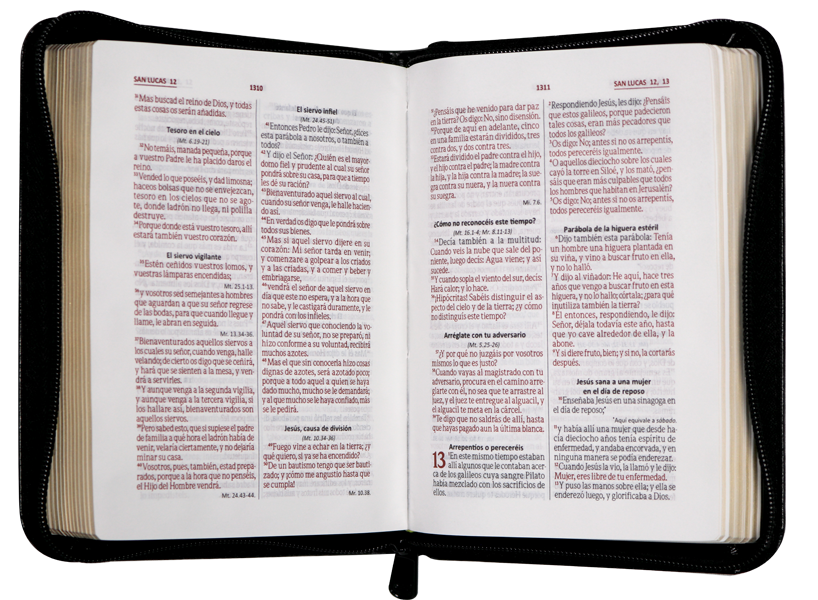 SAN LUCAS 12
1310
Mas buscad el reino de Dios, y todas
estas cosas os serán añadidas.
Tesoro en el cielo
(Mt. 6.19-21)
No temáis, manada pequeña, porque
a vuestro Padre le ha placido daros el
reino.
Vended lo que poseéis, y dad limosna;
haceos bolsas que no se envejezcan,
tesoro en los cielos que no se ago-
te, donde ladrón no llega, ni polilla
destruye.
Porque donde está vuestro tesoro, allí
estará también vuestro corazón.
El siervo vigilante
Estén ceñidos vuestros lomos, y
vuestras lámparas encendidas;
Mt. 25.1-13.
y vosotros sed semejantes a hombres
que aguardan a que su señor regrese
de las bodas, para que cuando llegue y
llame, le abran en seguida.
Mr. 13.34-36.
Bienaventurados aquellos siervos a
los cuales su señor, cuando venga, halle
velando; de cierto os digo que se ceñirá,
y hará que se sienten a la mesa, y ven-
drá a servirles.
Y aunque venga a la segunda vigilia,
y aunque venga a la tercera vigilia, si
los hallare así, bienaventurados son
aquellos siervos.
Pero sabed esto, que si supiese el padre
de familia a qué hora el ladrón había de
venir, velaría ciertamente, y no dejaría
minar su casa.
Vosotros, pues, también, estad prepa-
rados, porque a la hora que no penséis,
el Hijo del Hombre vendrá.
Mt. 24.43-44.
El siervo infiel
(Mt. 24.45-51)
Entonces Pedro le dijo: Señor, ¿dices
esta parábola a nosotros, o también a
todos?
Y dijo el Señor: ¿Quién es el mayor-
domo fiel y prudente al cual su señor
pondrá sobre su casa, para que a tiempo
les dé su ración?
Bienaventurado aquel siervo al cual,
cuando su señor venga, le halle hacien-
do así.
En verdad os digo que le pondrá sobre
todos sus bienes.
Mas si aquel siervo dijere en su
corazón: Mi señor tarda en venir;
y comenzare a golpear a los criados
y a las criadas, y a comer y beber y
embriagarse,
vendrá el señor de aquel siervo en
día que este no espera, y a la hora que
no sabe, y le castigará duramente, y le
pondrá con los infieles.
Aquel siervo que conociendo la vo-
luntad de su señor, no se preparó, ni
hizo conforme a su voluntad, recibirá
muchos azotes.
Mas el que sin conocerla hizo cosas
dignas de azotes, será azotado poco;
porque a todo aquel a quien se haya
dado mucho, mucho se le demandará;
y al que mucho se le haya confiado, más
se le pedirá.
Jesús, causa de división
(Mt. 10.34-36)
Fuego vine a echar en la tierra; ¿y
qué quiero, si ya se ha encendido?
De un bautismo tengo que ser bauti-
zado; y ¡cómo me angustio hasta que
se cumpla!
Mr. 10.38.
1311
SAN LUCAS 12, 13
¿Pensáis que he venido para dar paz
en la tierra? Os digo: No, sino disensión.
Porque de aquí en adelante, cinco
en una familia estarán divididos, tres
contra dos, y dos contra tres.
Estará dividido el padre contra el hijo,
y el hijo contra el padre; la madre contra
la hija, y la hija contra la madre; la sue-
gra contra su nuera, y la nuera contra
su suegra.
Mi. 7.6.
¿Cómo no reconocéis este tiempo?
(Mt. 16.1-4; Mr. 8.11-13)
Decía también a la multitud:
Cuando veis la nube que sale del po-
niente, luego decís: Agua viene; y así
sucede.
Y cuando sopla el viento del sur, decís:
Hará calor; y lo hace.
¡Hipócritas! Sabéis distinguir el as-
pecto del cielo y de la tierra; ¿y cómo
no distinguís este tiempo?
Arréglate con tu adversario
(Mt. 5.25-26)
¿Y por qué no juzgáis por vosotros
mismos lo que es justo?
Cuando vayas al magistrado con tu
adversario, procura en el camino arre-
glarte con él, no sea que te arrastre al
juez, y el juez te entregue al alguacil, y
el alguacil te meta en la cárcel.
Te digo que no saldrás de allí, hasta
que hayas pagado aun la última blanca.
Arrepentíos o pereceréis
13 En este mismo tiempo estaban
allí algunos que le contaban acer-
ca de los galileos cuya sangre Pilato
había mezclado con los sacrificios de
ellos.
Respondiendo Jesús, les dijo: ¿Pensáis
que estos galileos, porque padecieron
tales cosas, eran más pecadores que
todos los galileos?
Os digo: No; antes si no os arrepentís,
todos pereceréis igualmente.
O aquellos dieciocho sobre los cuales
cayó la torre en Siloé, y los mató, ¿pen-
sáis que eran más culpables que todos
los hombres que habitan en Jerusalén?
Os digo: No; antes si no os arrepentís,
todos pereceréis igualmente.
Parábola de la higuera estéril
Dijo también esta parábola: Tenía
un hombre una higuera plantada en
su viña, y vino a buscar fruto en ella,
y no lo halló.
Y dijo al viñador: He aquí, hace tres
años que vengo a buscar fruto en esta
higuera, y no lo hallo; córtala; ¿para qué
inutiliza también la tierra?
Él entonces, respondiendo, le dijo:
Señor, déjala todavía este año, hasta
que yo cave alrededor de ella, y la
abone.
Y si diere fruto, bien; y si no, la cortarás
después.
Jesús sana a una mujer
en el día de reposo
Enseñaba Jesús en una sinagoga en
el día de reposo;*
*Aquí equivale a sábado.
y había allí una mujer que desde ha-
cía dieciocho años tenía espíritu de
enfermedad, y andaba encorvada, y en
ninguna manera se podía enderezar.
Cuando Jesús la vio, la llamó y le dijo:
Mujer, eres libre de tu enfermedad.
Y puso las manos sobre ella; y ella se
enderezó luego, y glorificaba a Dios.